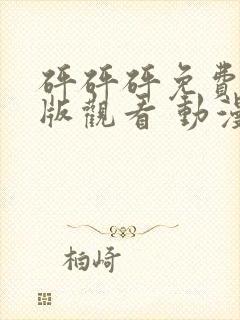 砰砰砰免費
版觀看 動漫
柏崎